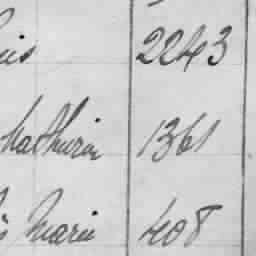 is 2243
Mathurin 1361
s Marie 408